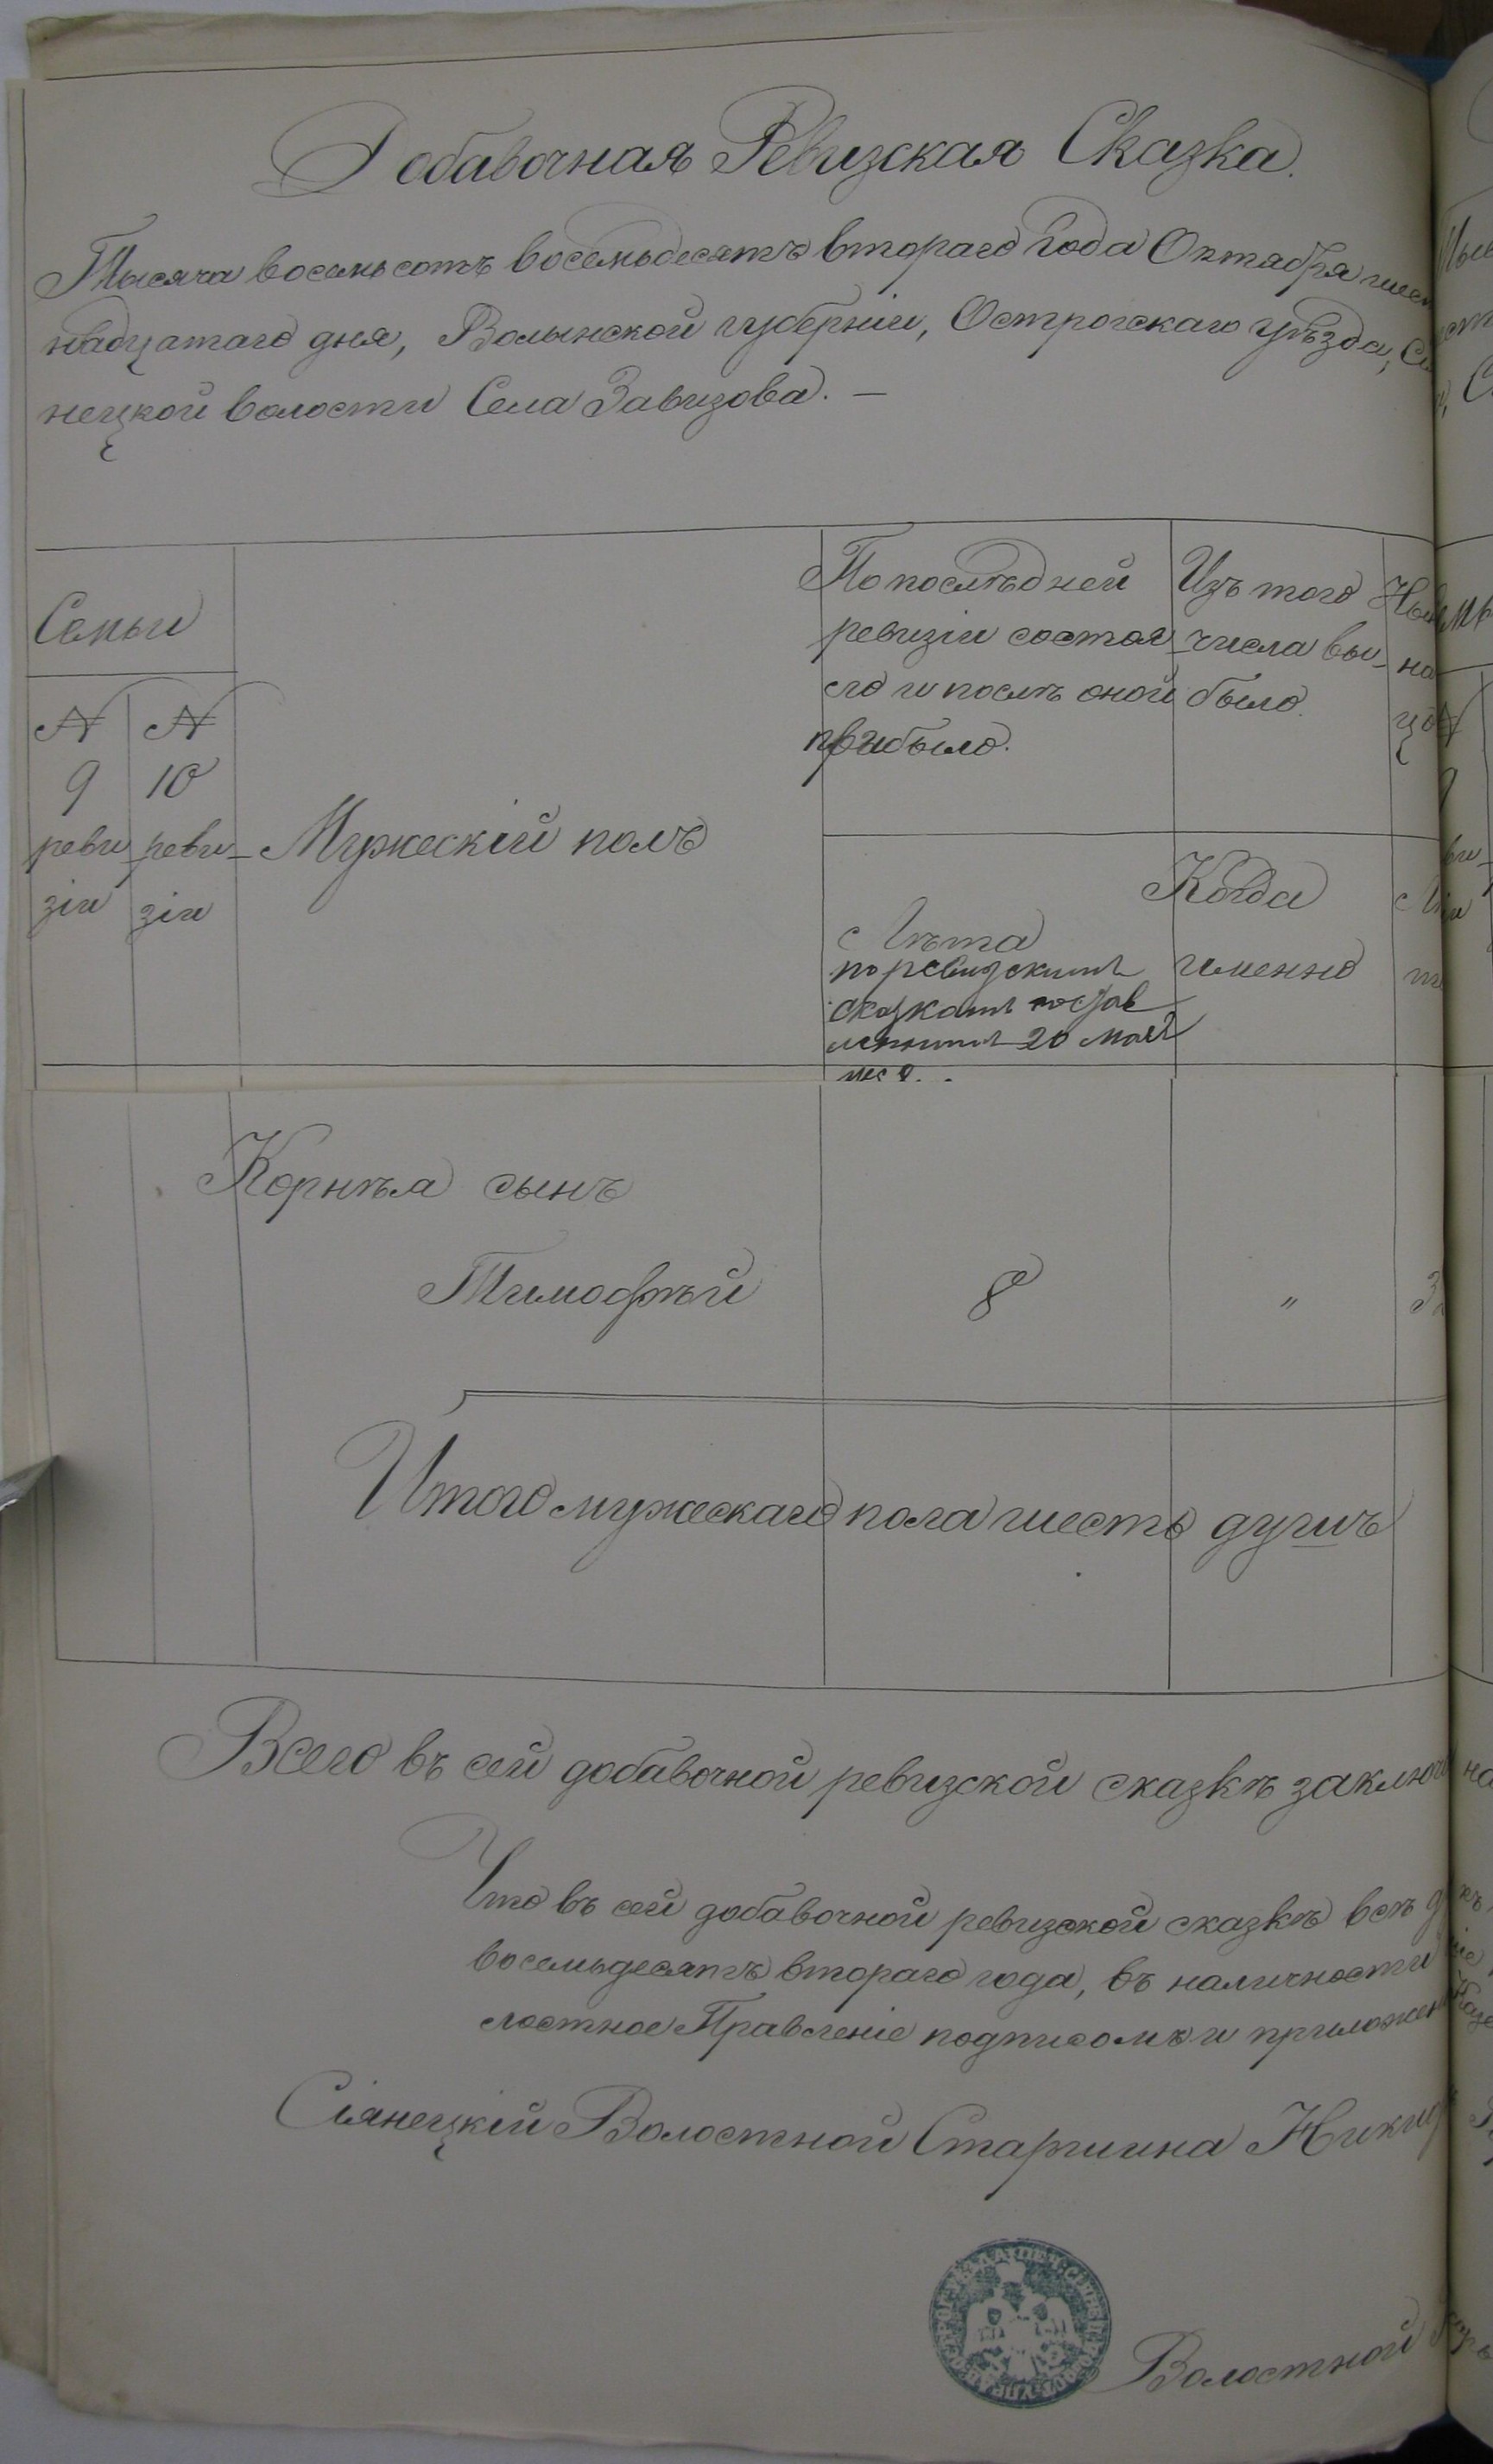 Добавочная Ревизская Сказка.
Тысяча восемьсотъ восемьдесятъ втораго года Октября шест
надцатаго дня, Волынской губерніи, Острогскаго уѣзда, Сія
нецкой волости Села Завизова. —
Семьи
№ 9 ревизіи
№ 10 ревизіи
Мужескій полъ
По послѣдней
ревизіи состоя
ло и послѣ оной
прибыло.
Изъ того
числа вы-
было.
Лѣта
по ревизскимъ
сказкамъ
20 мая
Когда
именно
Корнѣя сынъ
Тимофѣй 8 "
Итого мужескаго пола шесть душъ
Всего въ сей добавочной ревизской сказкѣ заключ
Что въ сей добавочной ревизской сказкѣ всѣ
восемьдесятъ втораго года, въ наличности
лостное Правленіе подписомъ и приложен
Сіянецкій Волостной Старшина Никиф
Волостной